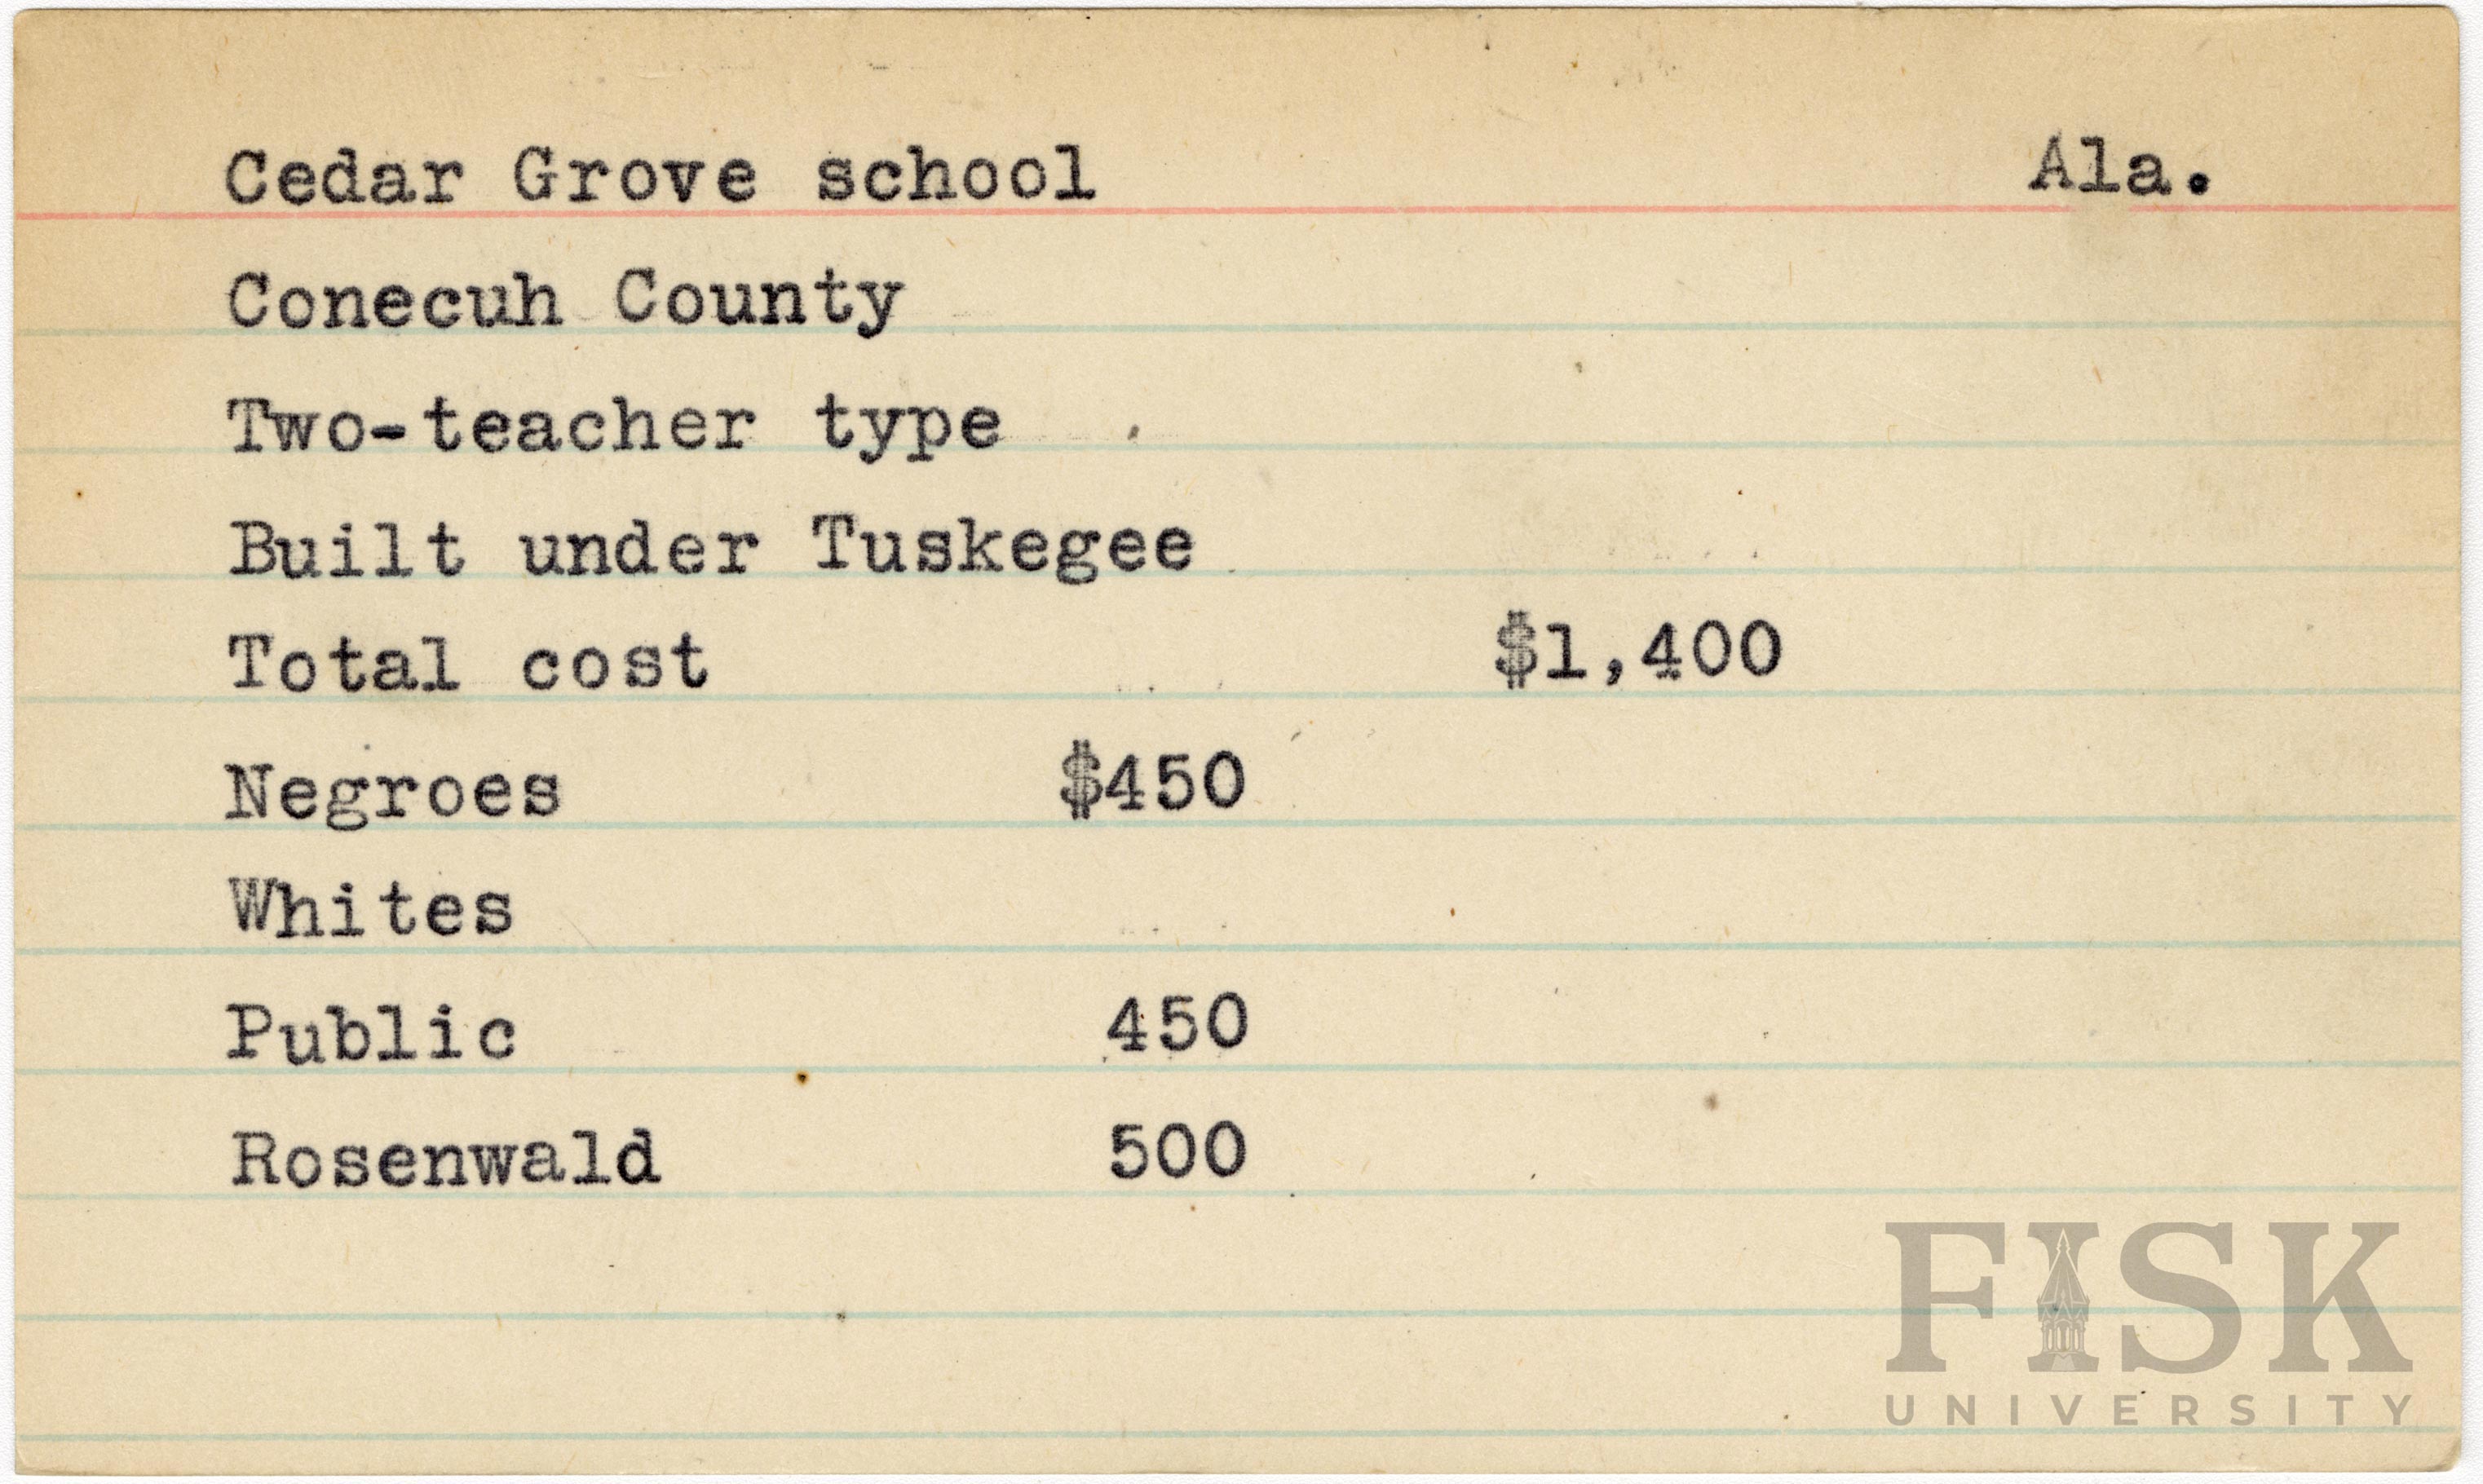 Cedar Grove school Ala.
Conecuh County
Two-teacher type
Built under Tuskegee
Total cost $1,400
Negroes $450
Whites
Public 450
Rosenwald 500
FISK
UNIVERSITY